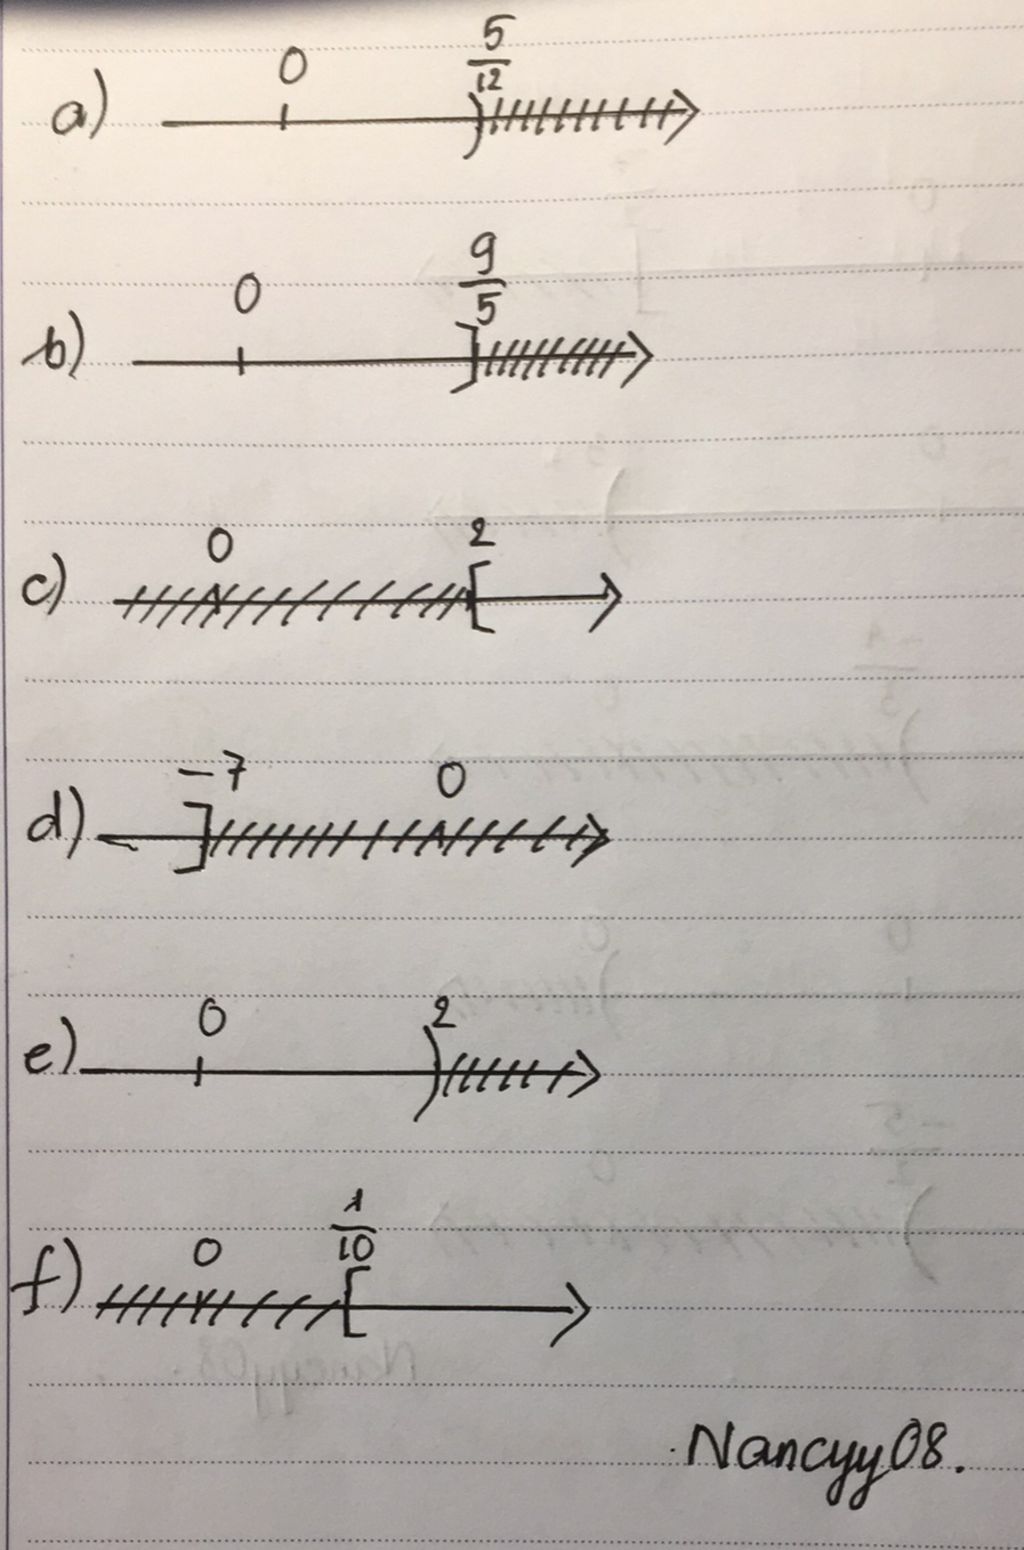 a) 0 5/12
b) 0 9/5
c) 0 2
d) -7 0
e) 0 2
f) 0 1/10
Nancyy08.